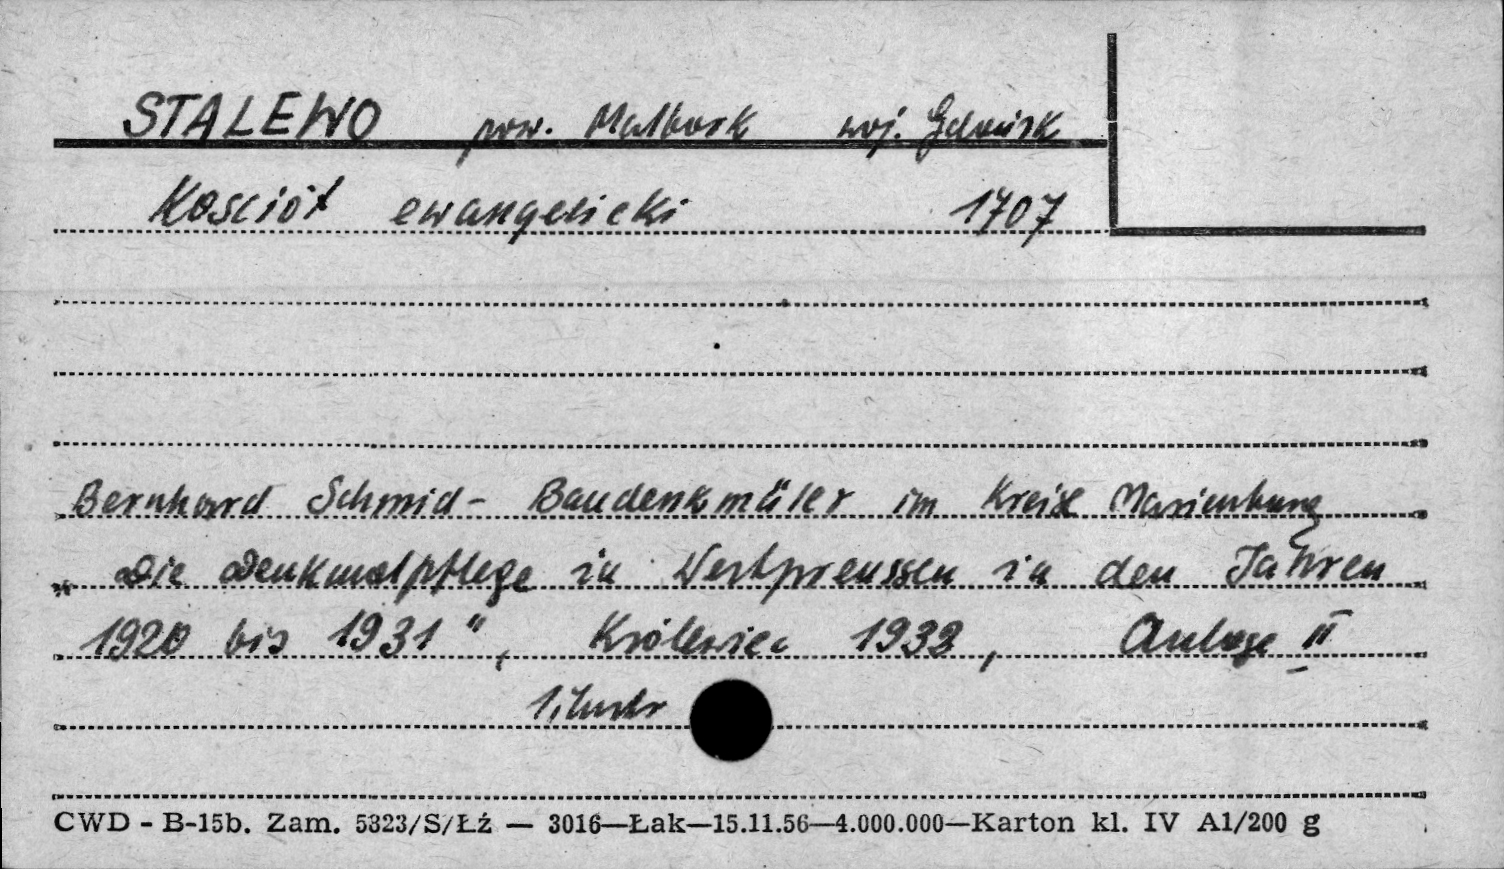 STALEWO pow. Malbork woj. Gdańsk
Kościół ewangelicki 1707
Bernhard Schmid - Baudenkmäler im Kreise Marienburg
" Die Denkmalpflege in Westpreussen in den Jahren
1920 bis 1931 ", Królewiec 1933, Anlage II
1 ilustr
CWD - B-15b. Zam. 5323/S/Łź — 3016—Łak—15.11.56—4.000.000—Karton kl. IV A1/200 g